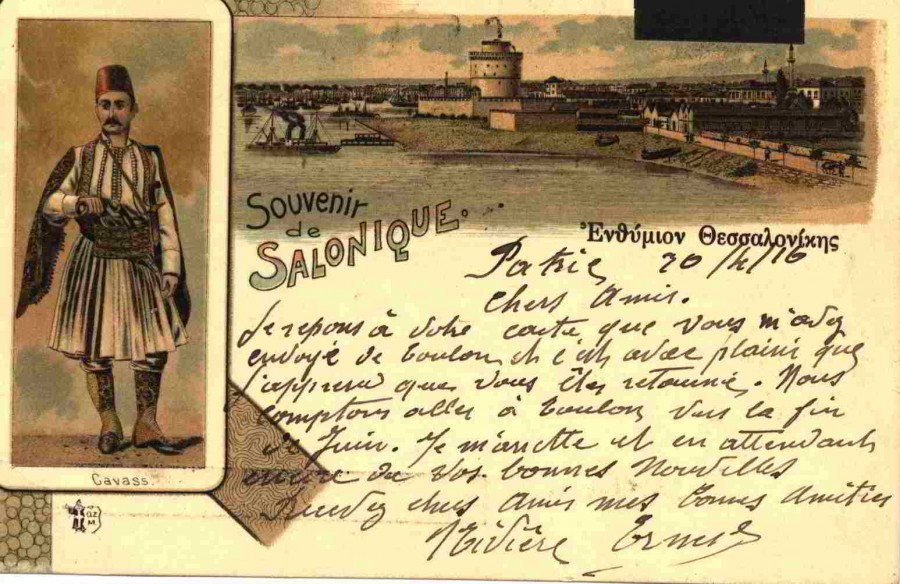 Souvenir
de
SALONIQUE.
Ἐνθύμιον Θεσσαλονίκης
Cavass.
Patrie 20/4/16
Chers Amis.
Je repons à votre carte que vous m'avez
envoyé de Toulon et c'est avec plaisir que
j'apprend que vous êtes retourné. Nous
comptons aller à Toulon vers la fin
de Juin. Je m'arrette et en attendant
encore de vos bonnes Nouvelles
Recevez chers Amis mes bonnes Amitiés
Ernest